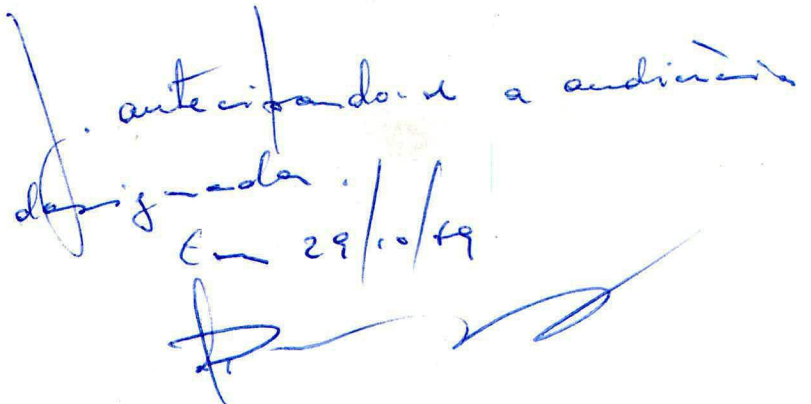 J. antecipando-se a audiência
designada.
Em 29/10/69